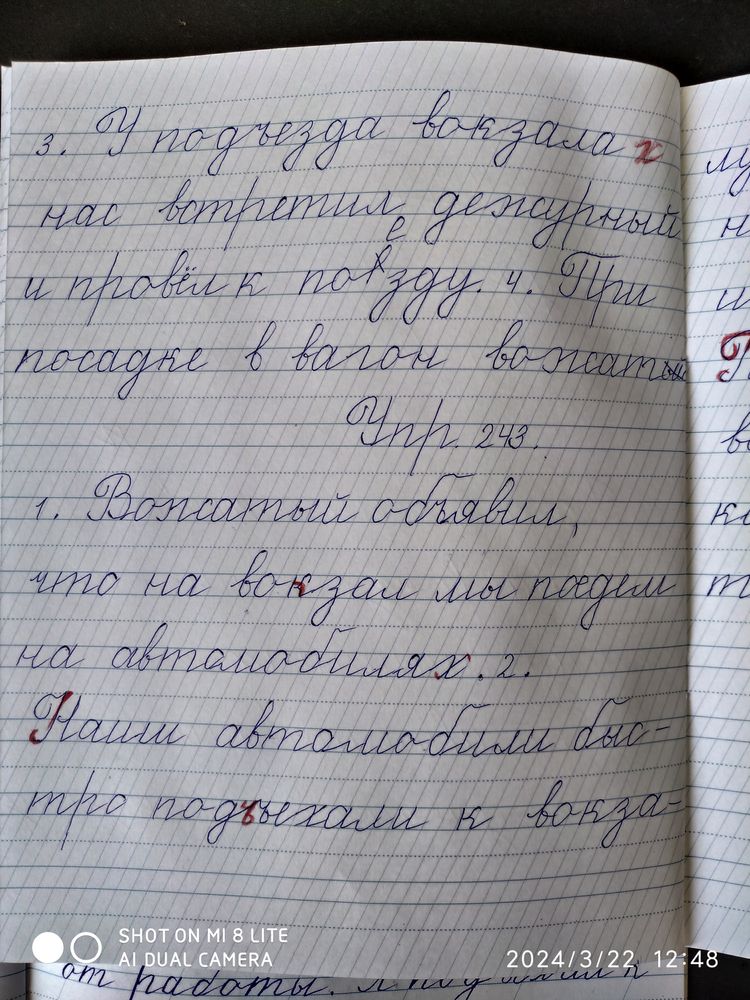 3. У подъезда вокзала х
нас встретил дежурный
е
и провёл к позду. 4. При
посадке в вагон вожатый
Упр. 243.
1. Вожатый объявил,
что на вокзал мы поедем
на автомобилях. 2.
Наши автомобили быс-
тро подъехали к вокза-
от работы.
SHOT ON MI 8 LITE
AI DUAL CAMERA
2024/3/22 12:48